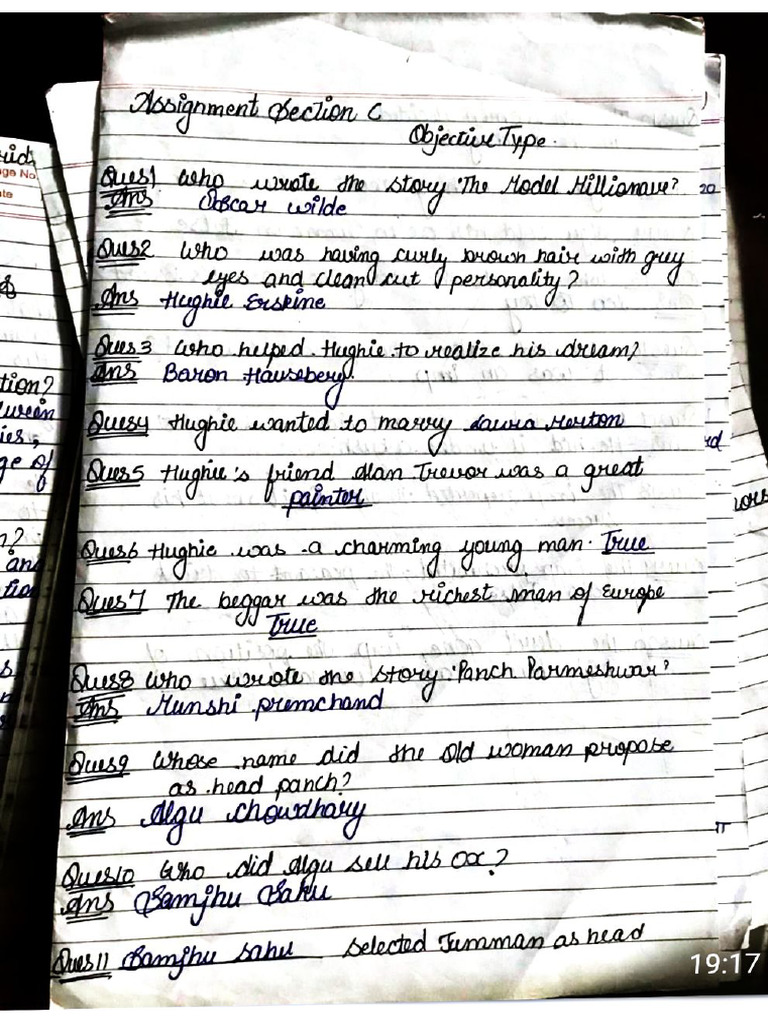 Assignment Section C
Objective Type.
Ques1 Who wrote the story 'The Model Millionaire?
Ans Oscar Wilde
Ques2 Who was having curly brown hair with grey
eyes and clean cut personality?
Ans Hughie Erskine
Ques3 Who helped Hughie to realize his dream?
Ans Baron Hauseberg.
Ques4 Hughie wanted to marry Laura Merton
Ques5 Hughie's friend Alan Trevor was a great
painter
Ques6 Hughie was a charming young man. True
Ques7 The beggar was the richest man of Europe
True
Ques8 Who wrote the story 'Panch Parmeshwar?
Ans Munshi premchand
Ques9 Whose name did the old woman propose
as head panch?
Ans Algu Chowdhary
Ques10 Who did Algu sell his Ox?
Ans Samjhu Sahu
Ques11 Samjhu sahu selected Jumman as head
19:17
tion?
ies,
ge of
n?
and
20